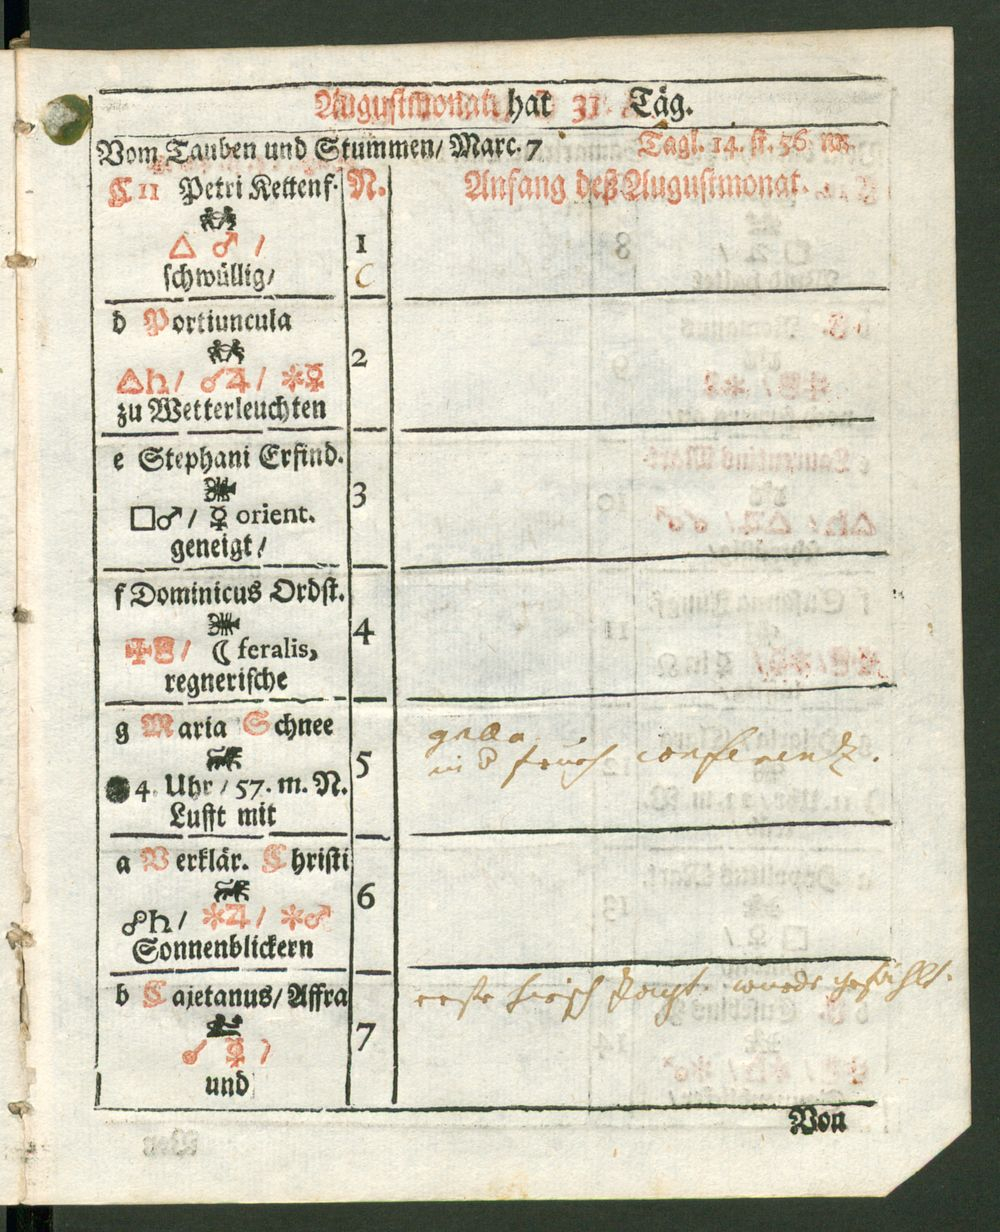 Augustmonat hat 31. Täg.
Vom Tauben und Stummen/ Marc. 7 Tagl. 14. st. 56. m.
C 11 Petri Kettenf. N. Anfang deß Augustmonat.
△ ♂ / 1
schwüllig/ C
d Portiuncula
△♄/ ☌♃/ ⚹☿ 2
zu Wetterleuchten
e Stephani Erfind.
□♂/ ☿ orient. 3
geneigt/
f Dominicus Ordst.
☾ feralis, 4
regnerische
g Maria Schnee
4. Uhr/ 57. m. N. 5
Lufft mit
in früh conferentz.
a Verklär. Christi
☍♄/ ⚹♃/ ⚹♂ 6
Sonnenblickern
b Cajetanus/ Affra
☌ ☿ / 7
und
erste hirsch Jagt wurde gefählt.
Von